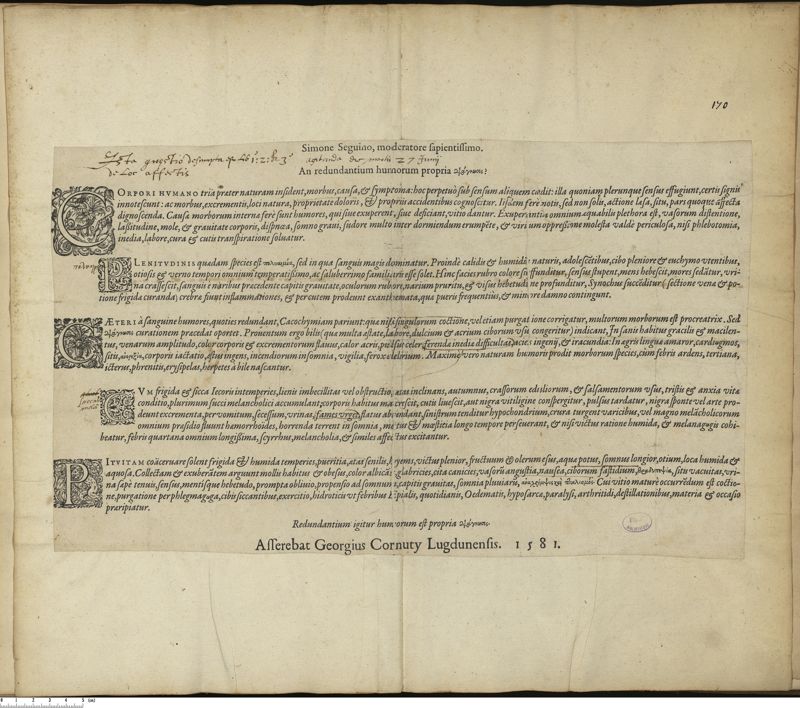 170
Simone Seguino, moderatore sapientissimo.
Ista quæstio desumpta ex lib 1. 2. & 3
de Loc affectis
agitanda die martii 27 Junii
An redundantium humorum propria διάγνωσις?
CORPORI HVMANO tria præter naturam insident, morbus, causa, & symptoma: hoc perpetuò sub sensum aliquem cadit: illa quoniam plerunque sensus effugiunt, certis signis
innotescunt: ac morbus, excrementis, loci natura, proprietate doloris, & propriis accidentibus cognoscitur. Iisdem ferè notis, sed non solis, actione læsa, situ, pars quoque affecta
dignoscenda. Causa morborum interna ferè sunt humores, qui siue exuperent, siue deficiant, vitio dantur. Exuperantia omnium æquabilis plethora est, vasorum distentione,
lassitudine, mole, & grauitate corporis, dispnœa, somno graui, sudore multo inter dormiendum erumpẽte, & virium oppressione molesta valdè periculosa, nisi phlebotomia,
inedia, labore, cura & cutis transpiratione soluatur.
PLENITVDINIS quædam species est πολυαιμία, sed in qua sanguis magis dominatur. Proindè calidis & humidis naturis, adolescẽtibus, cibo pleniore & euchymo vtentibus,
otiosis & verno tempori omnium temperatissimo, ac saluberrimo familiaris esse solet. Hinc facies rubro colore suffunditur, sensus stupent, mens hebescit, mores sedãtur, vri-
na crassescit, sanguis è naribus præcedente capitis grauitate, oculorum rubore, narium pruritu, & visus hebetudine profunditur, Synochus succẽditur (sectione venæ & po-
tione frigida curanda) crebrè fiunt inflammationes, & per cutem prodeunt exanthemata, qua pueris frequentius, & minore damno contingunt.
CÆTERI à sanguine humores, quoties redundant, Cacochymiam pariunt: quæ nisi singulorum coctione, vel etiam purgatione corrigatur, multorum morborum est procreatrix. Sed
διάγνωσις curationem præcedat oportet. Prouentum ergo bilis (quæ multa æstate, labore, dulcium & acrium ciborum vsu congeritur) indicant, In sanis habitus gracilis & macilen-
tus, venarum amplitudo, color corporis & excrementorum flauus, calor acris, pulsus celer, ferenda inediæ difficultas, acies ingenij, & iracundia: In ægris linguæ amaror, cardiogmos,
sitis, ἀνορεξία, corporis iactatio, æstus ingens, incendiorum insomnia, vigiliæ, ferox delirium. Maximè vero naturam humoris prodit morborum species, cùm febris ardens, tertiana,
icterus, phrenitis, erysipelas, herpetes à bile nascantur.
CVM frigida & sicca Iecoris intemperies, lienis imbecillitas vel obstructio, ætas inclinans, autumnus, crassorum edulium, & salsamentorum vsus, tristis & anxia vitæ
conditio, plurimum succi melancholici accumulant: corporis habitus macrescit, cutis liuescit, aut nigra vitiligine conspergitur, pulsus tardatur, nigra sponte vel arte pro-
deunt excrementa, per vomitum, secessum, vrinas, fames vrget, flatus abundant, sinistrum tenditur hypochondrium, crura turgent varicibus, vel magno melãcholicorum
omnium præsidio fluunt hæmorrhoides, horrenda terrent in somnia, metus & mœstitia longo tempore perseuerant, & nisi victus ratione humida, & melanagogis cohi-
beatur, febris quartana omnium longissima, scyrrhus, melancholia, & similes affectus excitantur.
PITVITAM coaceruare solent frigida & humida temperies, pueritia, ætas senilis, hyems, victus plenior, fructuum & olerum esus, aquæ potus, somnus longior, otium, loca humida &
aquosa. Collectam & exuberãtem arguunt mollis habitus & obesus, color albicãs, glabricies, cita canicies, vasorũ angustia, nausea, ciborum fastidium, situ vacuitas, vri-
na sæpè tenuis, sensus, mentisque hebetudo, prompta obliuio, propensio ad somnum, capitis grauitas, somnia pluuiarum, Cui vitio maturè occurrẽdum est coctio-
ne, purgatione per phlegmagoga, cibis siccantibus, exercitio, hidroticis vt febribus Epialis, quotidianis, Oedematis, hyposarca, paralysi, arthritidi, destillationibus, materia & occasio
præripiatur.
Redundantium igitur humorum est propria διάγνωσις.
Asserebat Georgius Cornuty Lugdunensis. 1581.
0 1 2 3 4 5 (cm)